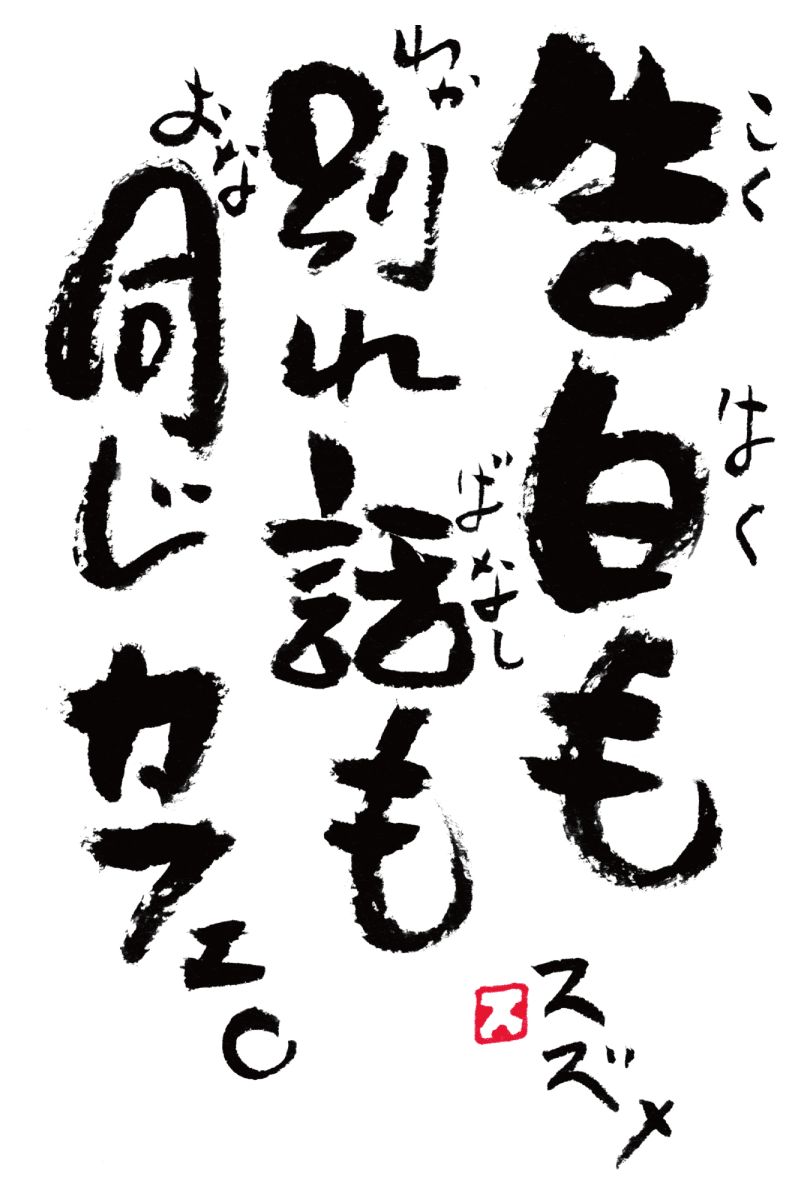 告白も
こくはく
別れ話も
わかばなし
同じカフェ。
おな
スズメ
ス